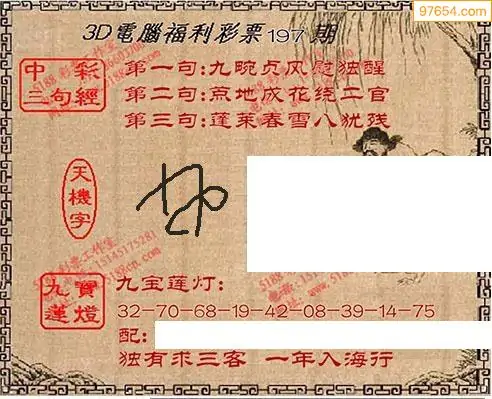 97654.com
3D電腦福利彩票197期
中彩三句經
第一句:九畹贞风慰独醒
第二句:荒地成花绕二官
第三句:蓬莱春雪八犹残
天機字
九寶蓮燈
九宝莲灯:
32-70-68-19-42-08-39-14-75
配:
独有求三客 一年入海行